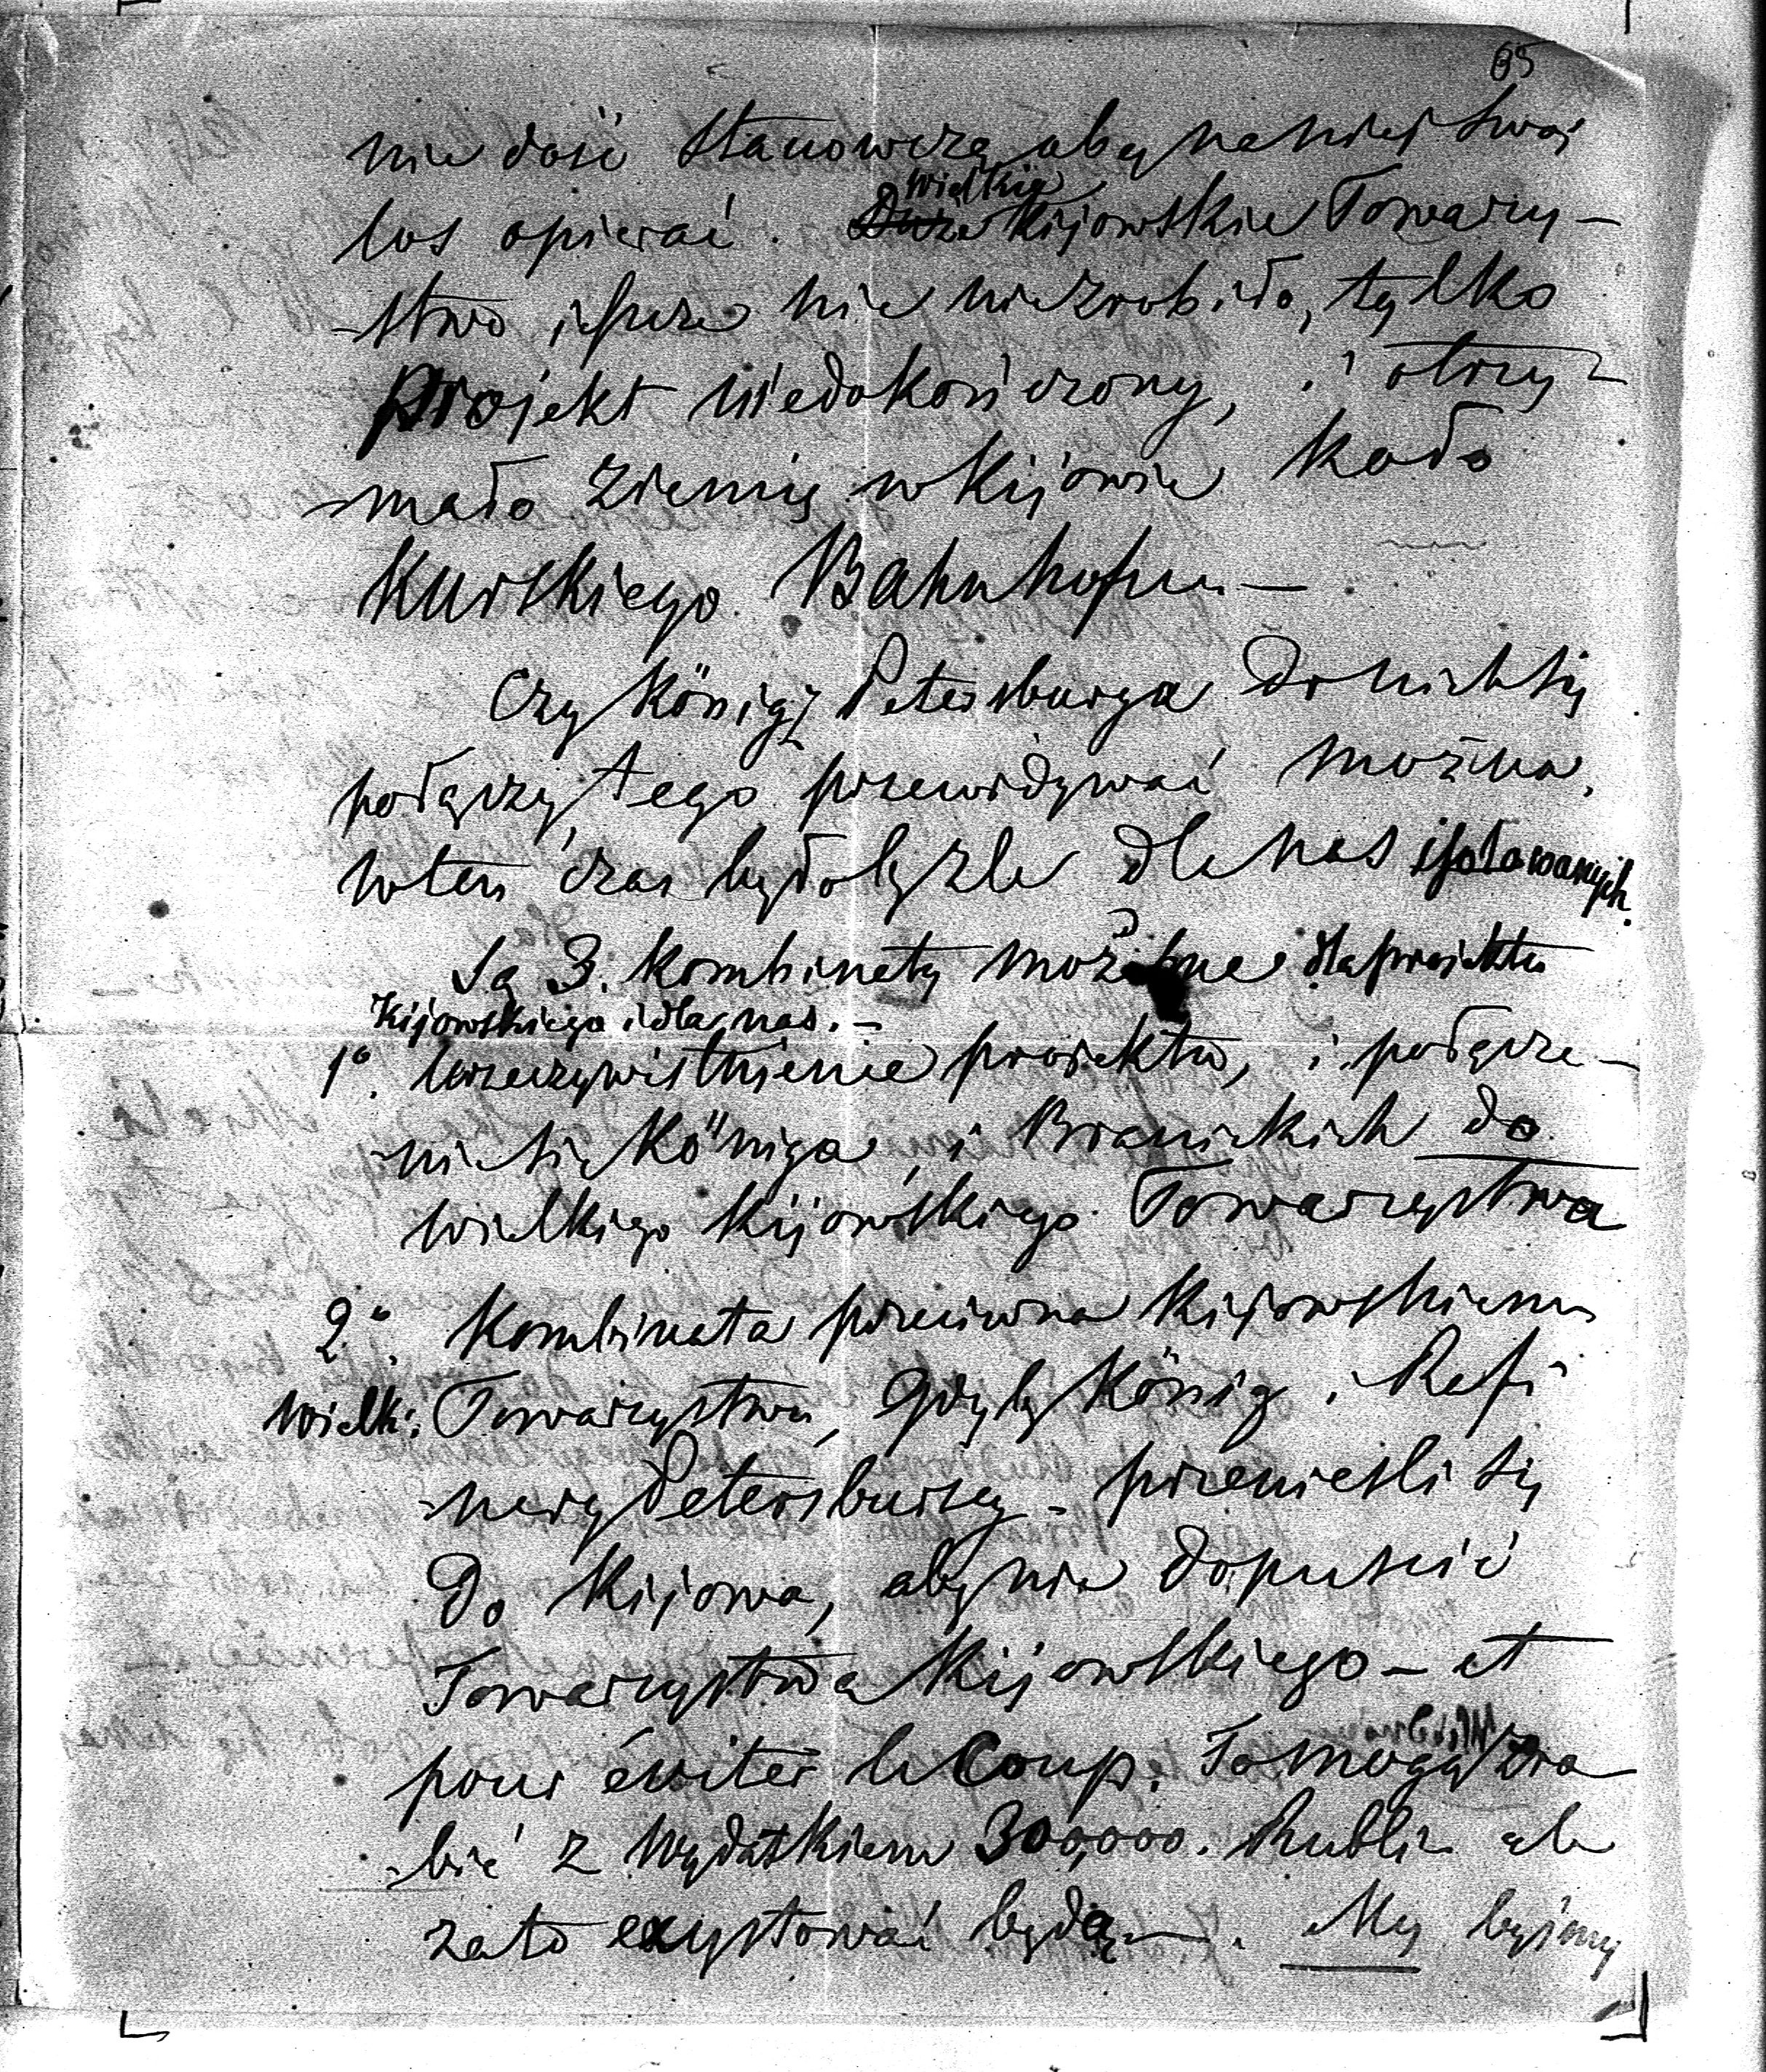 65
nie dość stanowczą aby na niej swój
los opierać. Duże Wielkie Kijowskie Towarzy-
-stwo jeszcze nic nie zrobiło, tylko
projekt niedokończony, i otrzy-
-mało ziemię w Kijowie koło
Kurskiego Bahnhofu —
Czy König z Petersburga do nich się
połączy, tego przewidywać można,
w ten czas byłoby źle dla nas isolowanych.
Są 3. kombinaty możebne dla projektu
Kijowskiego i dla nas. —
1°. Urzeczywistnienie projektu, i połącze-
nie się Königa, i Branickich do
wielkiego Kijowskiego Towarzystwa
2°. Kombinata przeciwna Kijowskiemu
Wielk: Towarzystwu, gdyby König i Rafi
-nery Petersburscy - przenieśli się
do Kijowa, aby nie dopuścić
Towarzystwa Kijowskiego — et
pour éviter le Coup. To mogą zro-
-bić z wydatkiem 300,000. Rubli ale
zato exystować będą —. My byśmy